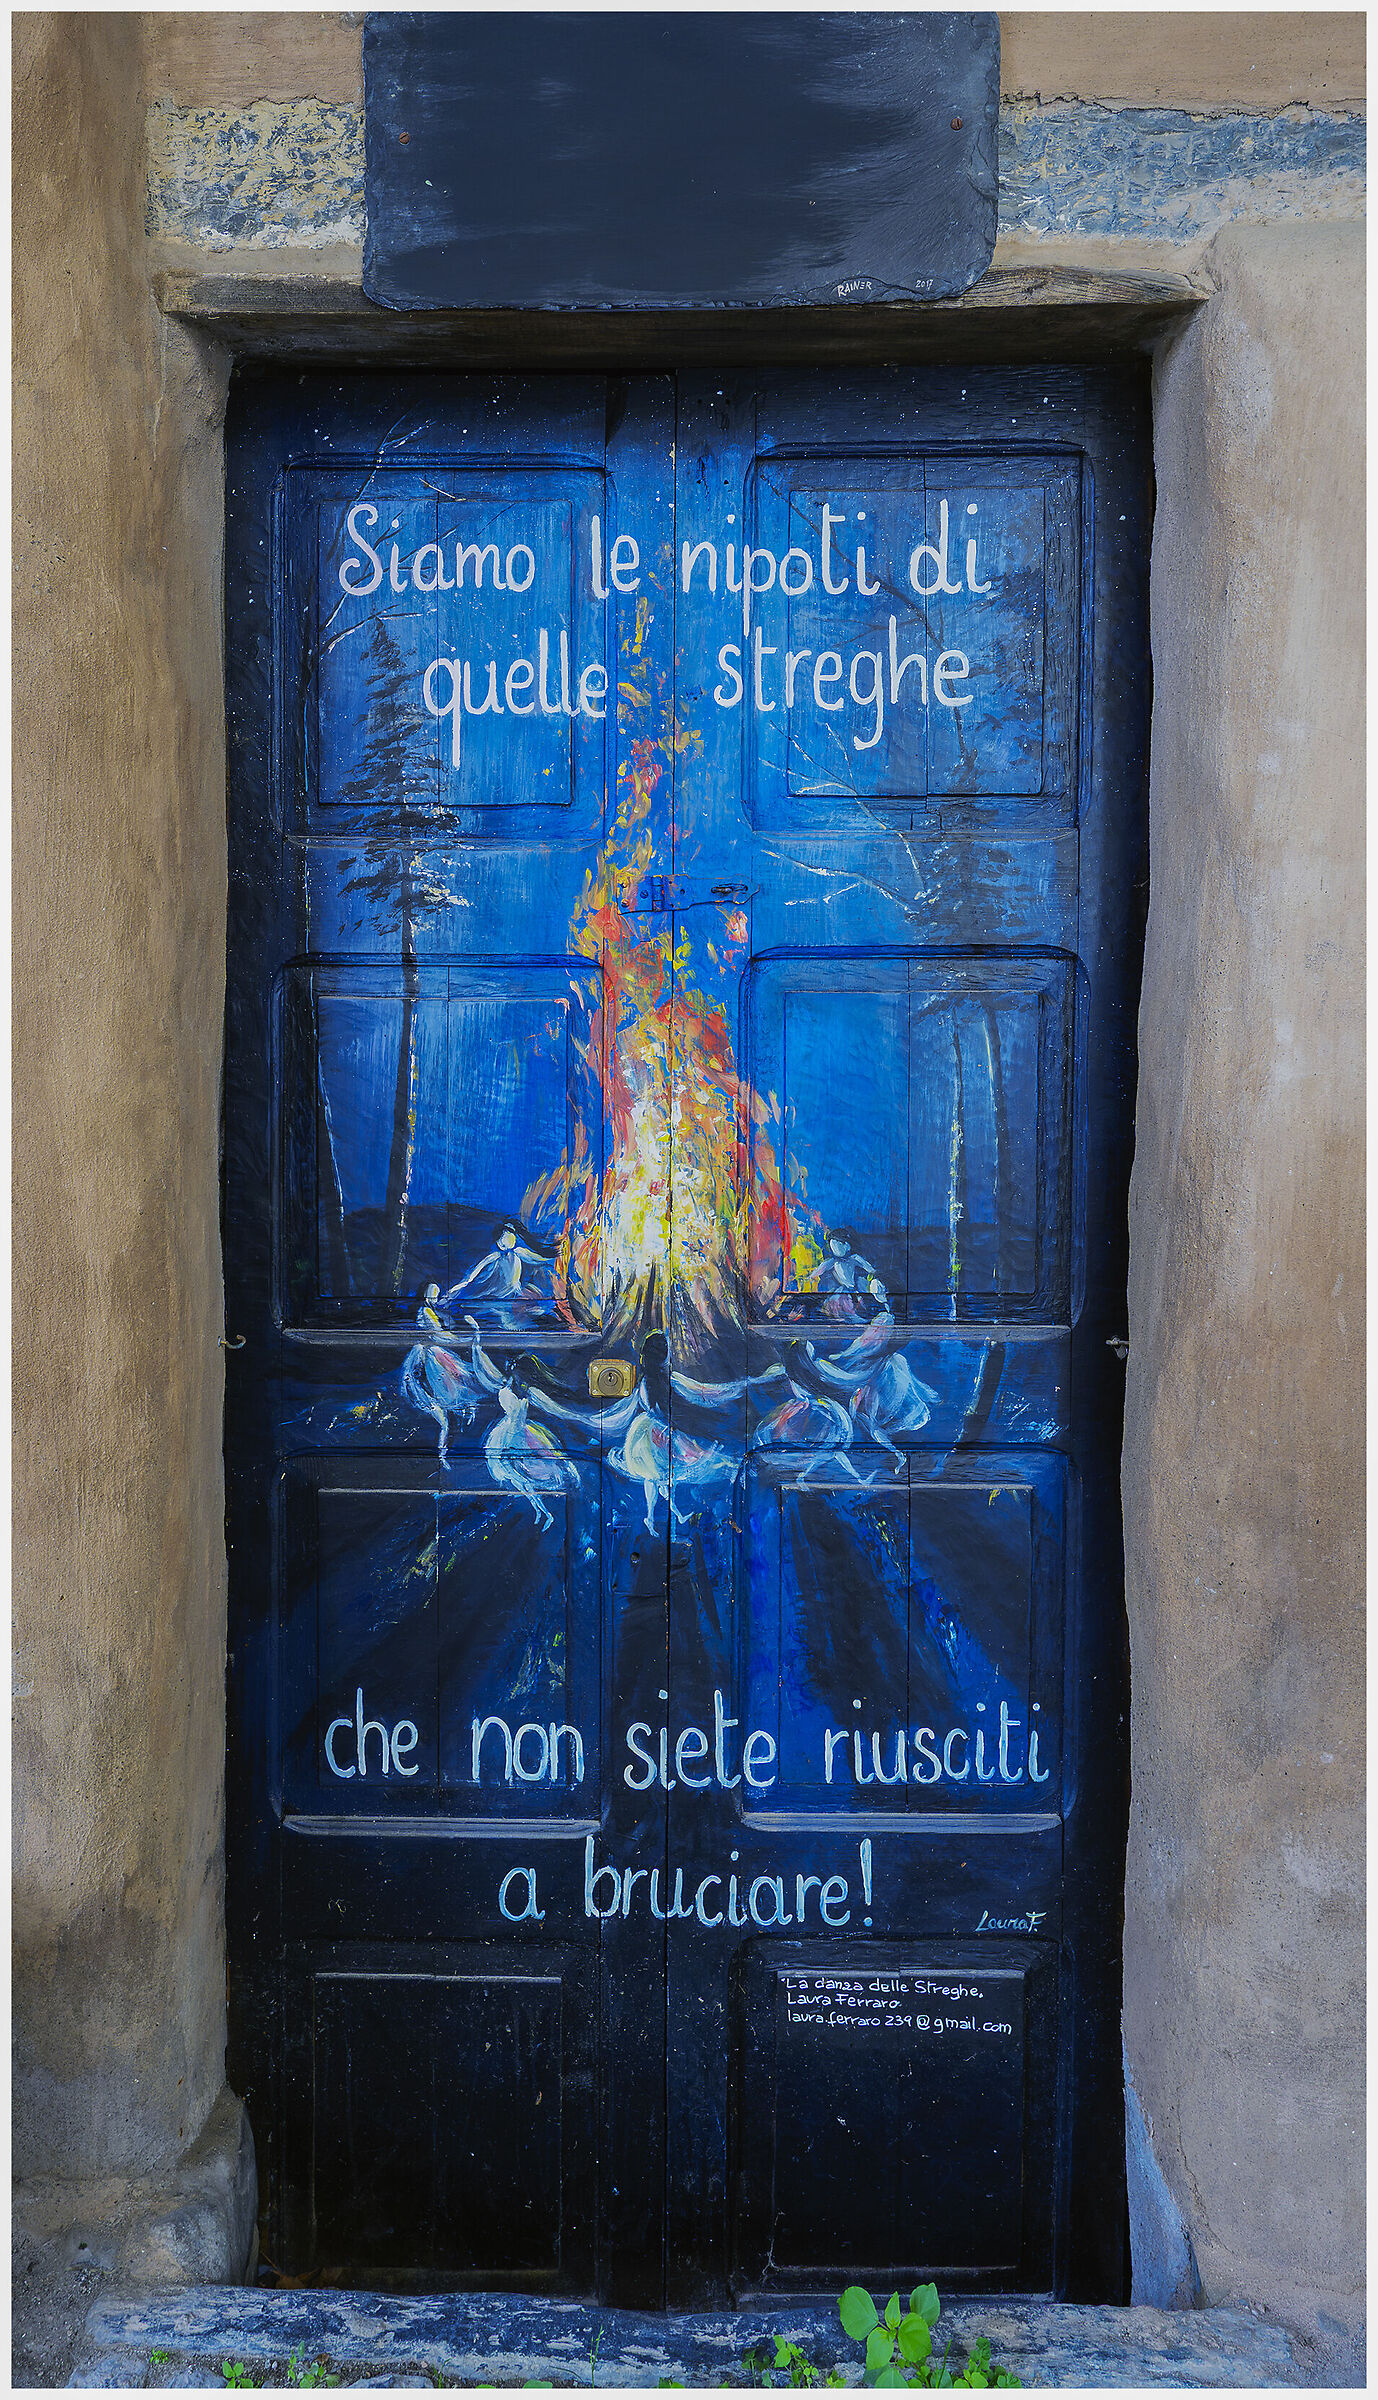 RAINER 2017
Siamo le nipoti di
quelle streghe
che non siete riusciti
a bruciare!
Laura F.
"La danza delle Streghe.
Laura Ferraro
laura.ferraro239@gmail.com